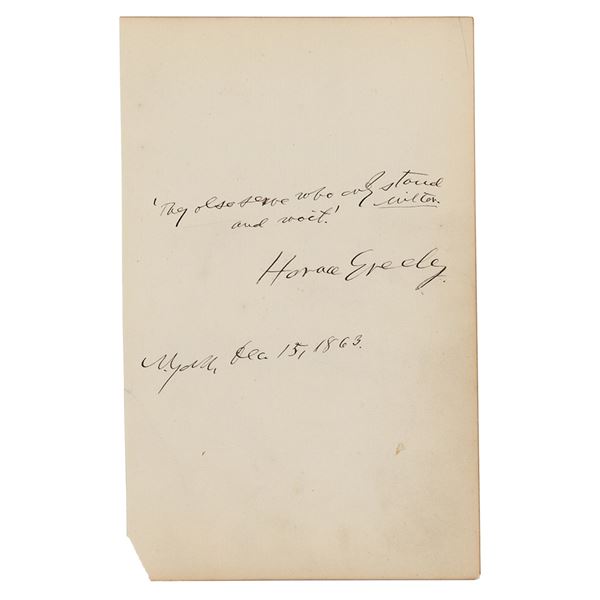 'They also serve who only stand
and wait.' Milton.
Horace Greeley.
N. York, Dec. 15, 1863.